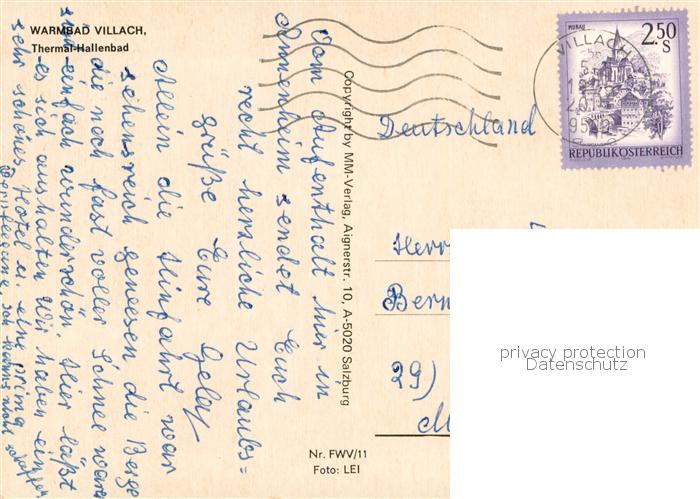 WARMBAD VILLACH,
Thermal-Hallenbad
Vom Aufenthalt hir in
Annenheim sendet Euch
recht herzliche Urlaubs=
grüße Eure
Allein die Hinfahrt war
sehensreich gewesen die Berge
die noch fast voller Schnee waren
einfach wunderschön. Hier läßt
es sich aushalten Wir haben ein
sehr schönes Hotel u. eine prima
Copyright by MM-Verlag, Aignerstr. 10, A-5020 Salzburg
Nr. FWV/11
Foto: LEI
VILLACH
MURAU
2.50
S
REPUBLIK ÖSTERREICH
Deutschland
Herr
Bern
29)
privacy protection
Datenschutz